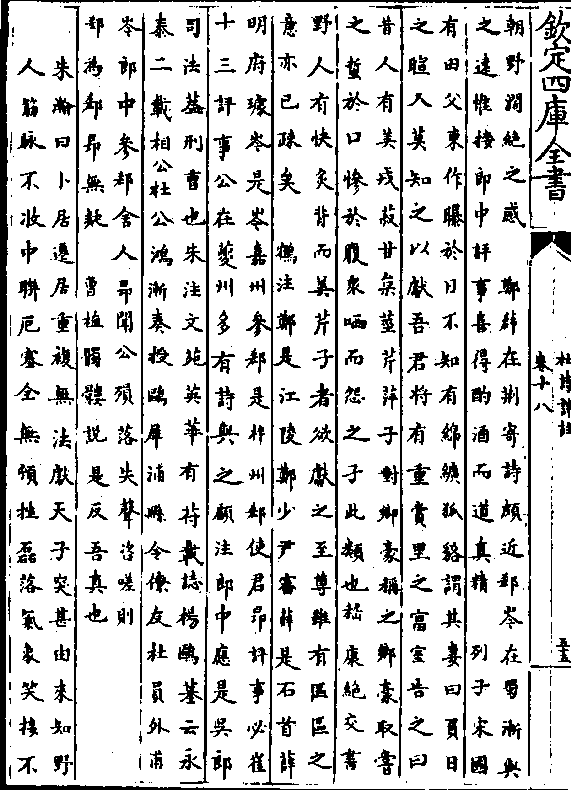 欽定四庫全書
杜詩詳註
卷十八
朝野濶絶之感 鄭薛在荆寄詩頗近郄岑在蜀漸與
之遠惟接郎中評事喜得酌酒而道真精 列子宋國
有田父東作曝於日不知有綿纊狐貉謂其妻曰負日
之暄人莫知之以獻吾君將有重賞里之富室告之曰
昔人有美戎菽甘枲莖芹萍子對鄉豪稱之鄉豪取嘗
之蜇於口慘於腹衆哂而怨之子此類也嵇康絶交書
野人有快炙背而美芹子者欲獻之至尊雖有區區之
意亦已疎矣 鶴注鄭是江陵鄭少尹審薛是石首薛
明府璩岑是岑嘉州參郄是梓州郄使君昻評事必崔
十三評事公在夔州多有詩與之顧注郎中應是吳郎
司法蓋刑曹也朱注文苑英華有符載誌楊鷗墓云永
泰二載相公杜公鴻漸奏授鷗犀浦縣令僚友杜員外甫
岑郎中參郄舍人昻聞公殞落失聲咨嗟則
郄為郄昻無疑 曹植髑髏説是反吾真也
朱瀚曰卜居遷居重複無法獻天子突甚由來知野
人筋脉不收中聯厄塞全無頓挫磊落氣象笑接不